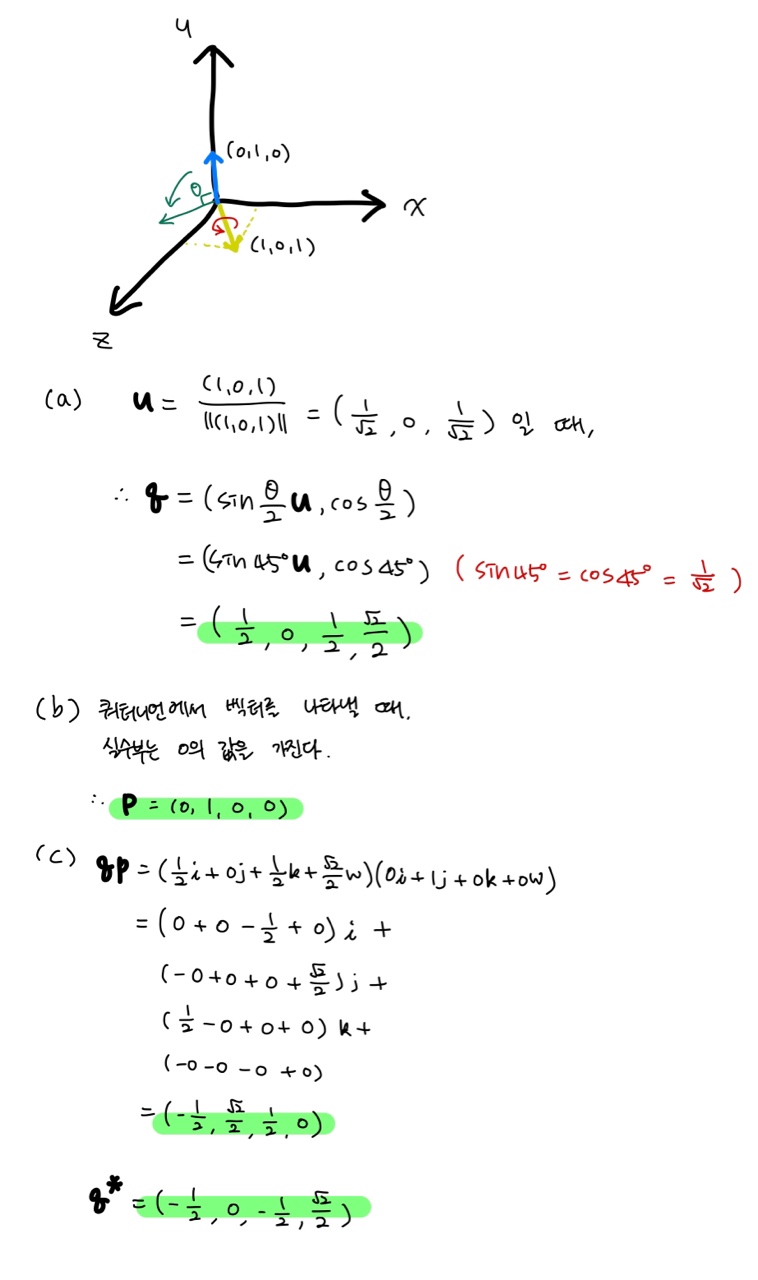 y
(0,1,0)
θ
x
(1,0,1)
z
(a) u = (1,0,1) / ||(1,0,1)|| = (1/√2, 0, 1/√2) 일 때,
∴ q = (sin θ/2 u, cos θ/2)
= (sin 45° u, cos 45°) (sin 45° = cos 45° = 1/√2)
= (1/2, 0, 1/2, √2/2)
(b) 쿼터니언에서 벡터를 나타낼 때,
실수부는 0의 값을 가진다.
∴ P = (0, 1, 0, 0)
(c) qp = (1/2 i + 0j + 1/2 k + √2/2 w)(0i + 1j + 0k + 0w)
= (0 + 0 - 1/2 + 0) i +
(-0 + 0 + 0 + √2/2) j +
(1/2 - 0 + 0 + 0) k +
(-0 -0 -0 +0)
= (-1/2, √2/2, 1/2, 0)
q* = (-1/2, 0, -1/2, √2/2)